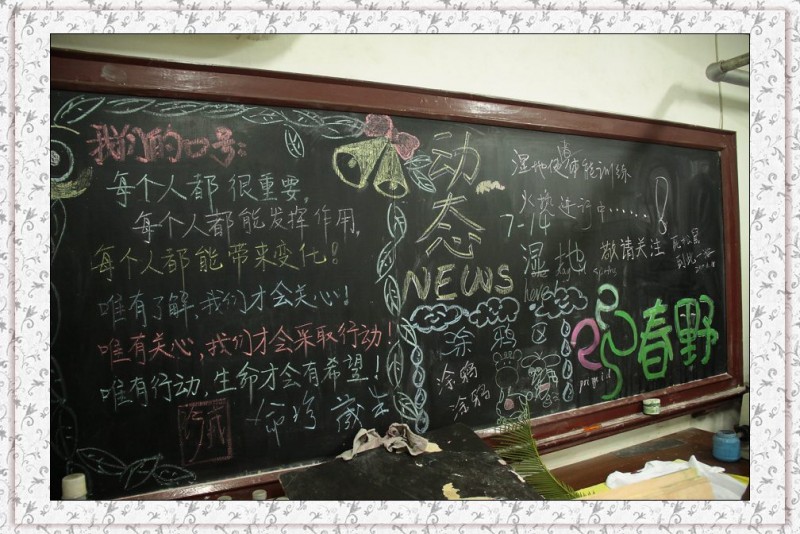 我们的口号：
每个人都很重要。
每个人都能发挥作用。
每个人都能带来变化！
唯有了解,我们才会关心！
唯有关心,我们才会采取行动！
唯有行动,生命才会有希望！
动态
NEWS
涂鸦区
涂鸦
涂鸦
湿地使者体能训练
火热进行中……
7-14
湿地
News
敬请关注
春野